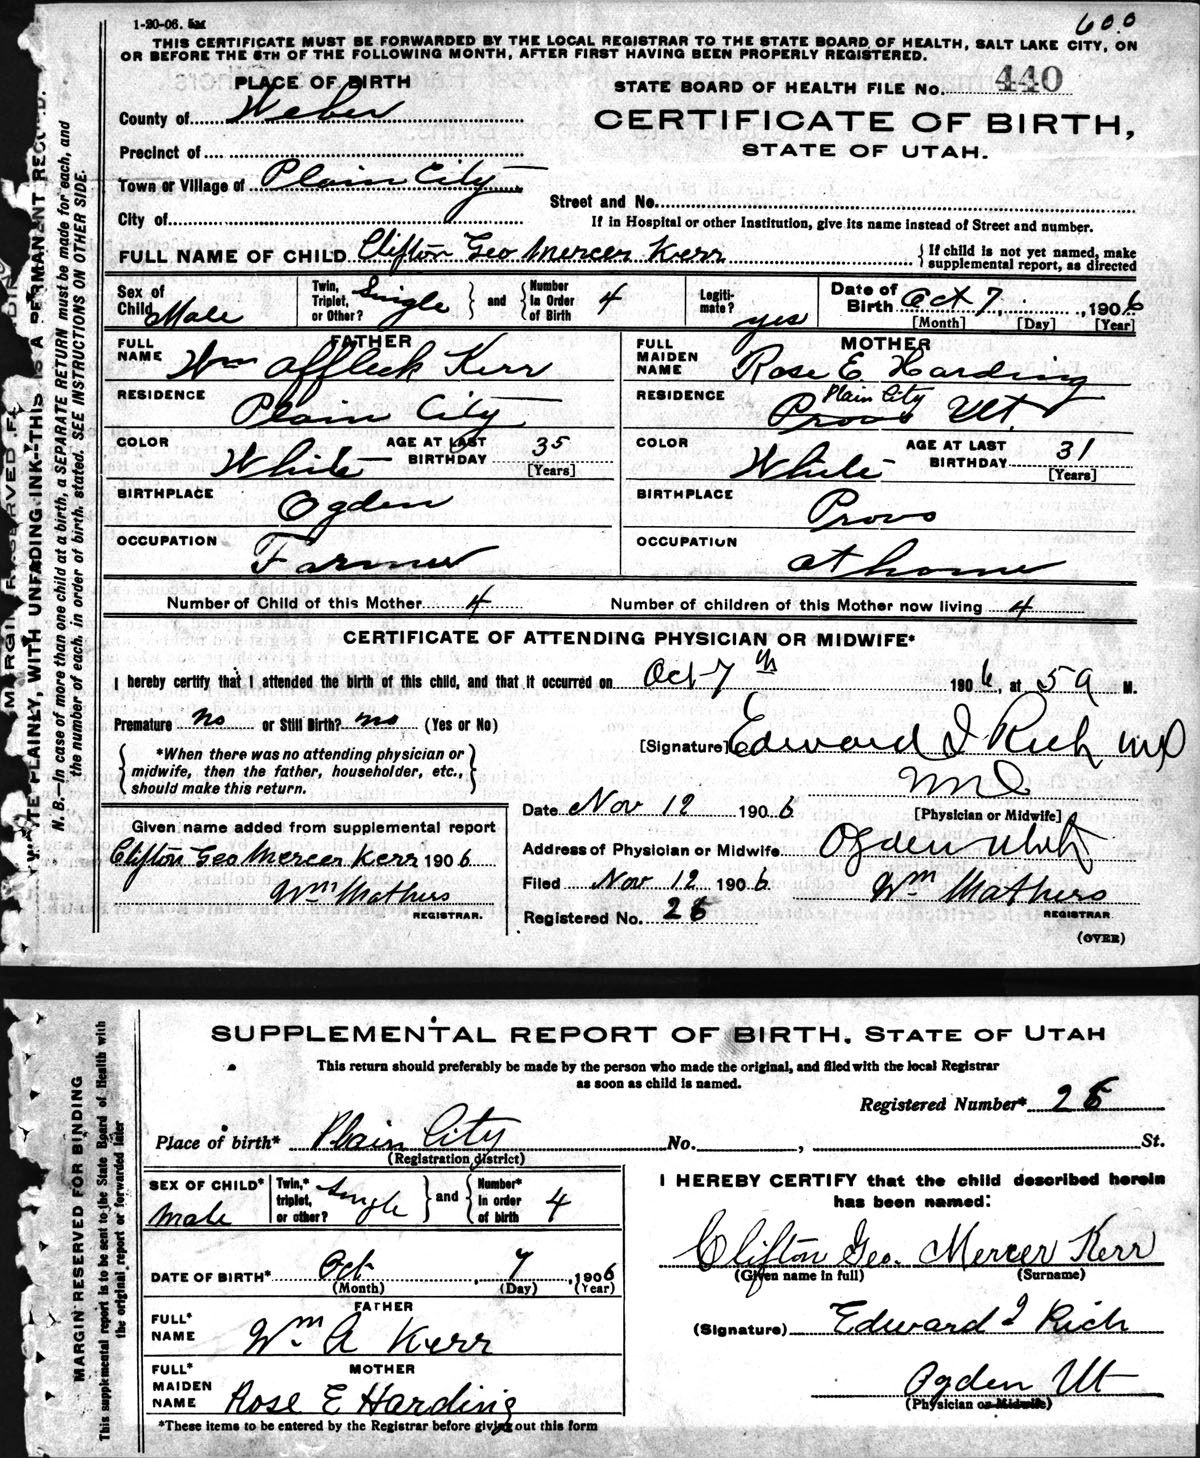 1-20-06. 5M
600
THIS CERTIFICATE MUST BE FORWARDED BY THE LOCAL REGISTRAR TO THE STATE BOARD OF HEALTH, SALT LAKE CITY, ON
OR BEFORE THE 5TH OF THE FOLLOWING MONTH, AFTER FIRST HAVING BEEN PROPERLY REGISTERED.
PLACE OF BIRTH
STATE BOARD OF HEALTH FILE No. 440
County of Weber
CERTIFICATE OF BIRTH,
STATE OF UTAH.
Precinct of
Town or Village of Plain City
Street and No.
City of
If in Hospital or other Institution, give its name instead of Street and number.
FULL NAME OF CHILD Clifton Geo Mercer Kerr { If child is not yet named, make supplemental report, as directed
Sex of Child Male Twin, Triplet, or Other? Single } and { Number In Order of Birth 4 Legiti- mate? yes Date of Birth Oct 7, 1906
[Month] [Day] [Year]
FATHER MOTHER
FULL NAME Wm Affleck Kerr FULL MAIDEN NAME Rose E. Harding
RESIDENCE Plain City RESIDENCE Provo Plain City Ut.
COLOR White AGE AT LAST BIRTHDAY 35 [Years] COLOR White AGE AT LAST BIRTHDAY 31 [Years]
BIRTHPLACE Ogden BIRTHPLACE Provo
OCCUPATION Farmer OCCUPATION at home
Number of Child of this Mother 4 Number of children of this Mother now living 4
CERTIFICATE OF ATTENDING PHYSICIAN OR MIDWIFE*
I hereby certify that I attended the birth of this child, and that it occurred on Oct 7th 1906, at 5 a M.
Premature no or Still Birth? no (Yes or No)
[Signature] Edward I Rich MD
*When there was no attending physician or
midwife, then the father, householder, etc.,
should make this return.
MD
Date Nov 12 1906
[Physician or Midwife]
Given name added from supplemental report
Address of Physician or Midwife Ogden Utah
Clifton Geo Mercer Kerr 1906
Filed Nov 12 1906 Wm Mathers
Wm Mathers
REGISTRAR.
Registered No. 25
REGISTRAR
(OVER)
MARGIN RESERVED F
WRITE PLAINLY, WITH UNFADING INK--THIS IS A PERMANENT RECORD.
N. B.—In case of more than one child at a birth, a SEPARATE RETURN must be made for each, and
the number of each, in order of birth, stated. SEE INSTRUCTIONS ON OTHER SIDE.
SUPPLEMENTAL REPORT OF BIRTH, STATE OF UTAH
This return should preferably be made by the person who made the original, and filed with the local Registrar
as soon as child is named.
Registered Number* 25
Place of birth* Plain City No. , St.
(Registration district)
SEX OF CHILD* Male Twin,* triplet, or other? Single } and { Number* In order of birth 4
I HEREBY CERTIFY that the child described herein
has been named:
Clifton Geo. Mercer Kerr
(Given name in full) (Surname)
DATE OF BIRTH* Oct , 7 , 1906
(Month) (Day) (Year)
FATHER
FULL* NAME Wm A Kerr
(Signature) Edward I Rich
MOTHER
FULL* MAIDEN NAME Rose E Harding
Ogden Ut
(Physician or Midwife)
*These items to be entered by the Registrar before giving out this form
MARGIN RESERVED FOR BINDING
This supplemental report is to be sent to the State Board of Health with
the original report or forwarded later